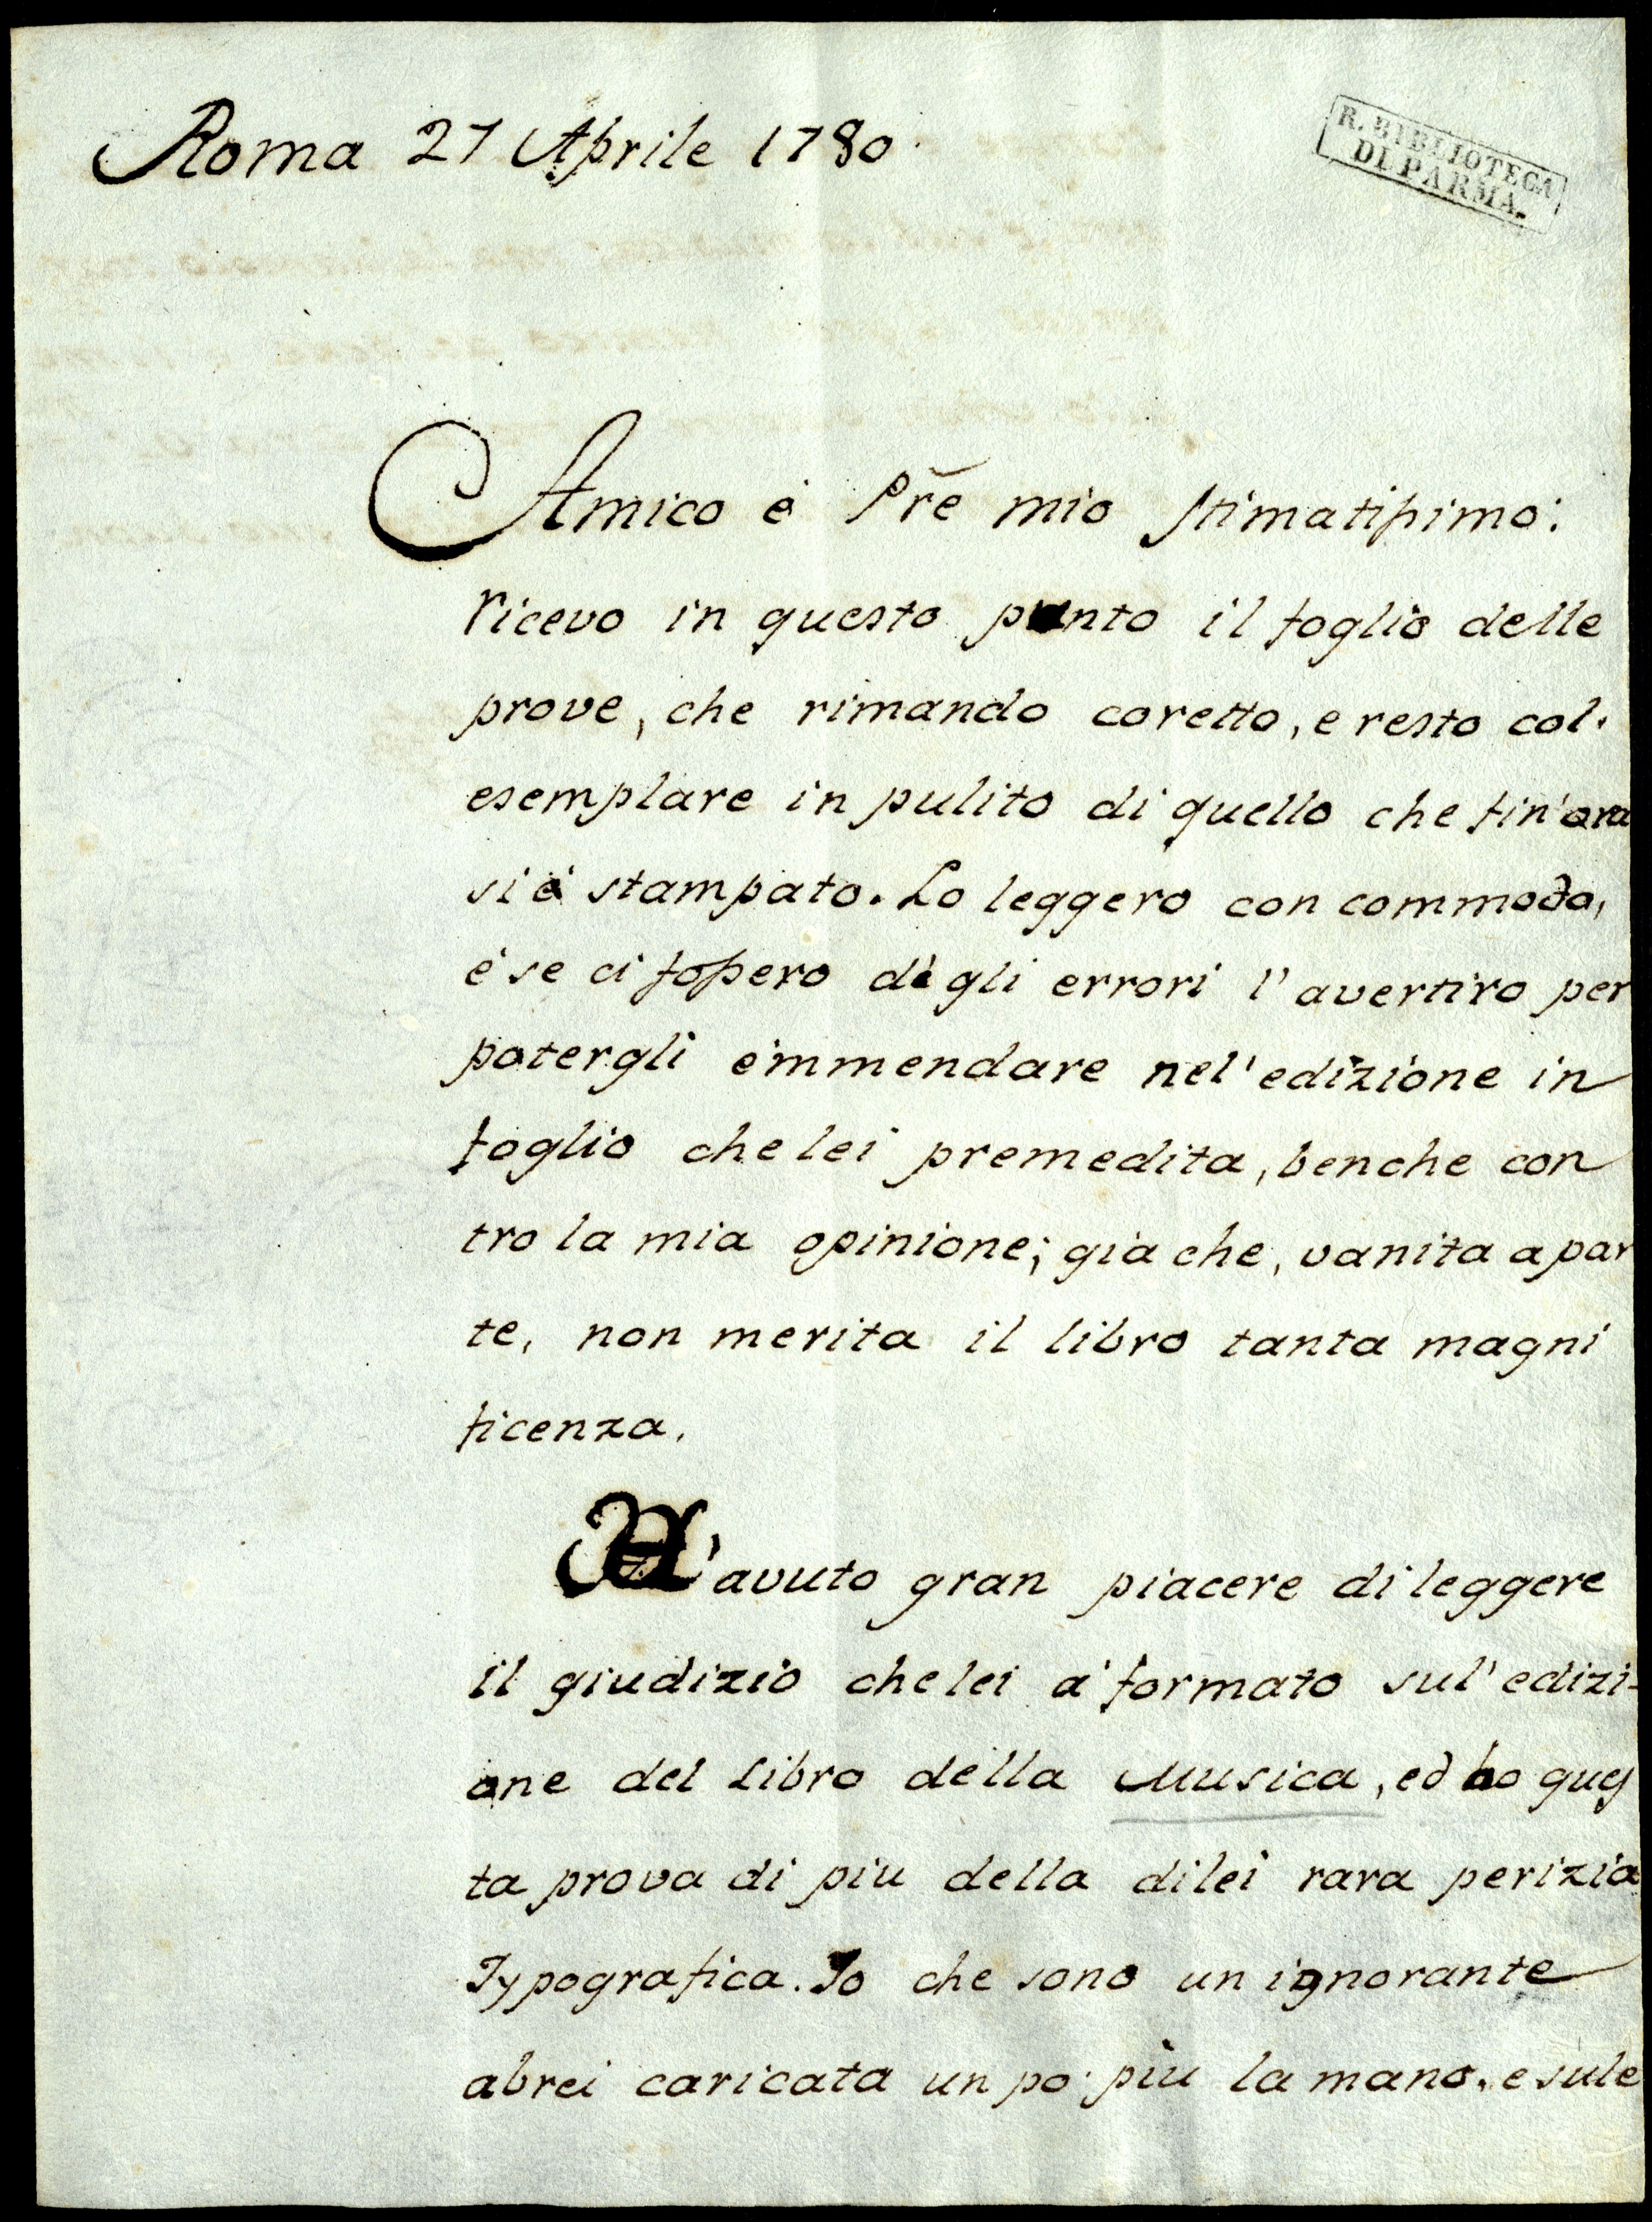 Roma 27 Aprile 1780.
R. BIBLIOTECA
DI PARMA.
Amico é Pr̃e mio stimatissimo:
ricevo in questo punto il foglio delle
prove, che rimando coretto, e resto col'
esemplare in pulito di quello che fin'ora
si é stampato. Lo leggero con commodo,
é se ci fossero dègli errori l'avertiro per
potergli emmendare nel'edizione in
foglio che lei premedita, benche con
tro la mia opinione; gia che, vanita a par
te, non merita il libro tanta magni
ficenza.
'avuto gran piacere di leggere
il giudizio che lei a' formato sul'edizi-
one del Libro della Musica, ed ho ques
ta prova di piu della di lei rara perizia
Typografica. Io che sono un ignorante
abrei caricata un po' piu la mano, e sule